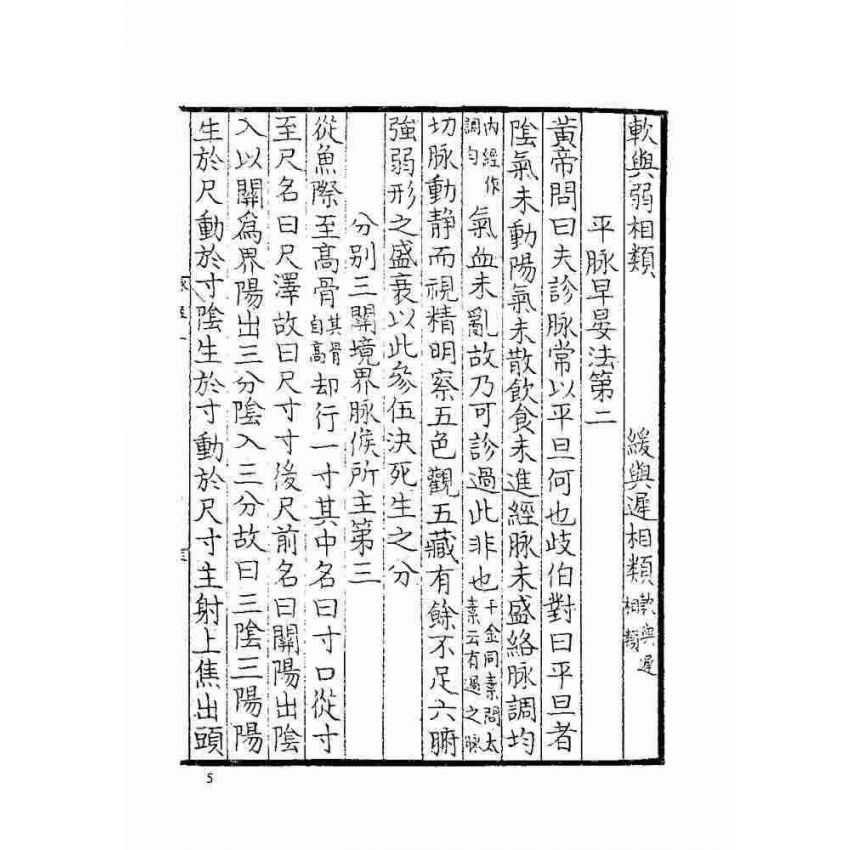 軟與弱相類　緩與遲相類軟與遲相類
平脉早晏法第二
黃帝問曰夫診脉常以平旦何也歧伯對曰平旦者
陰氣未動陽氣未散飲食未進經脉未盛絡脉調均
內經作調均氣血未亂故乃可診過此非也千金同素問太素云有過之脉
切脉動靜而視精明察五色觀五藏有餘不足六腑
強弱形之盛衰以此參伍決死生之分
分別三關境界脉候所主第三
從魚際至高骨其骨自高却行一寸其中名曰寸口從寸
至尺名曰尺澤故曰尺寸寸後尺前名曰關陽出陰
入以關爲界陽出三分陰入三分故曰三陰三陽陽
生於尺動於寸陰生於寸動於尺寸主射上焦出頭
5